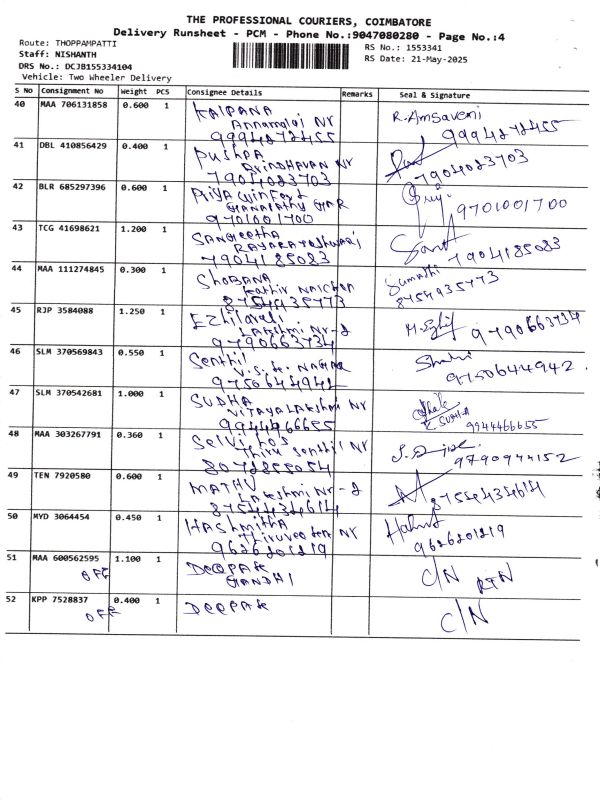 THE PROFESSIONAL COURIERS, COIMBATORE
Delivery Runsheet - PCM - Phone No.:9047080280 - Page No.:4
Route: THOPPAMPATTI
RS No.: 1553341
Staff: NISHANTH
RS Date: 21-May-2025
DRS No.: DCJB155334104
Vehicle: Two Wheeler Delivery
S No Consignment No Weight PCS Consignee Details Remarks Seal & Signature
40 MAA 706131858 0.600 1 KALPANA R. Amsaveni
Annamalai Nr
9994872455 9994872455
41 DBL 410856429 0.400 1 Pushpa
Brindhavan Nr
7904083703 7904083703
42 BLR 685297396 0.600 1 Priya Priy
Ganapathy
9701001700 9701001700
43 TCG 41698621 1.200 1 Sangeetha
7904185083 7904185083
44 MAA 111274845 0.300 1 Shobana Sumathi
Kathir
8754935773 8754935773
45 RJP 3584088 1.250 1 Ezhilarasi
Lakshmi Nr-2
9790663734 9790663734
46 SLM 370569843 0.550 1 Senthil
Nagar
9750644942 9750644942
47 SLM 370542681 1.000 1 SUDHA
VIJAYALAKSHMI Nr K SUDHA
9944466655 9944466655
48 MAA 303267791 0.360 1 Selvi
Thiru Senthil Nr
9790974152
49 TEN 7920580 0.600 1 MATHU
Lakshmi Nr-2
8754434614 8754434614
50 MYD 3064454 0.450 1 Hashmitha
Nr
9626201219 9626201219
51 MAA 600562595 1.100 1 Deepak C/N RTN
OFF GANDHI
52 KPP 7528837 0.400 1 Deepak C/N
OFF